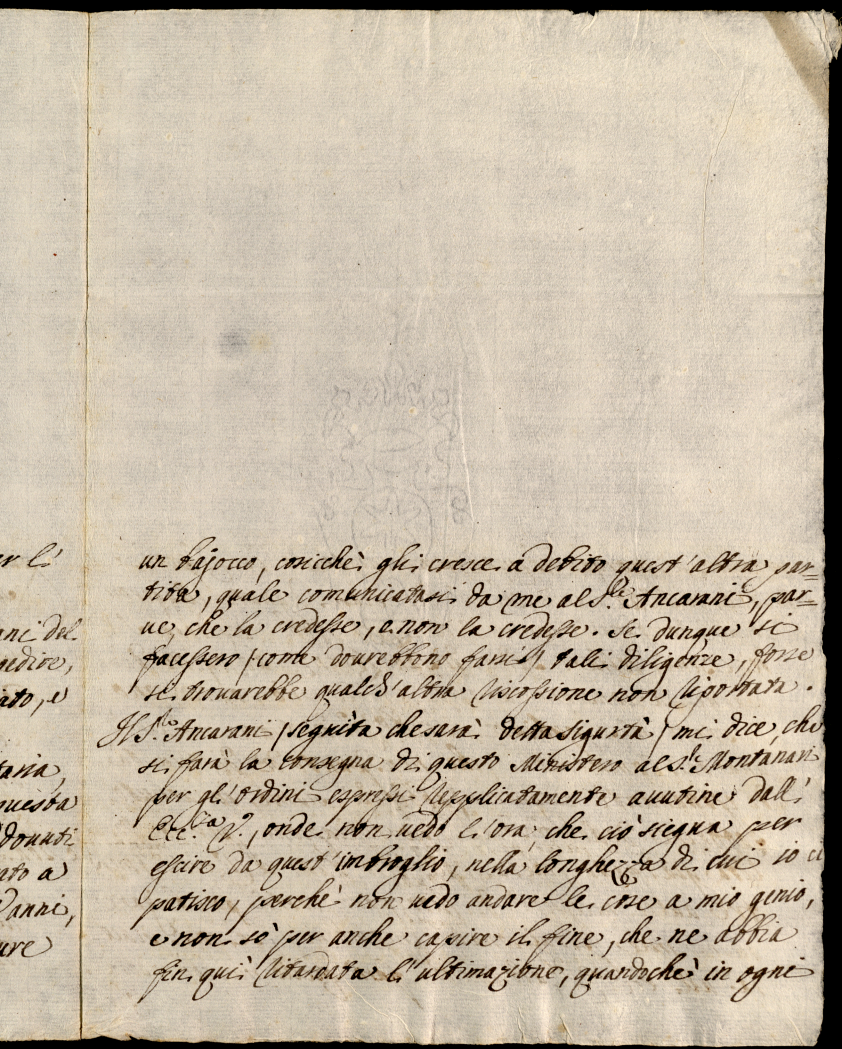 er li
ani del
edire,
iato, e
taria,
questa
douuti
nto a
Danni,
ure
un bajocco, cosicchè gli cresce a debito quest'altra par=
tita, quale comunicatasi da me al S.re Ancarani, par=
ue, che la credesse, e non la credesse. Se dunque si
facessero (come dourebbono farsi) tali diligenze, forse
se trouarebbe qualch'altra riscossione non riportata.
Il S.re Ancarani (seguita che sarà detta sigurtà) mi dice, che
si farà la consegna di questo Ministero al S.r Montanari
per gl'ordini espressi replicatamente auutine dall'
Ecc.za V., onde non uedo l'ora, che ciò siegua per
escire da quest'imbroglio, nella longhezza di cui io ci
patisco, perchè non uedo andare le cose a mio genio,
e non sò per anche capire il fine, che ne abbia
fin qui ritardata l'ultimazione, quandochè in ogni